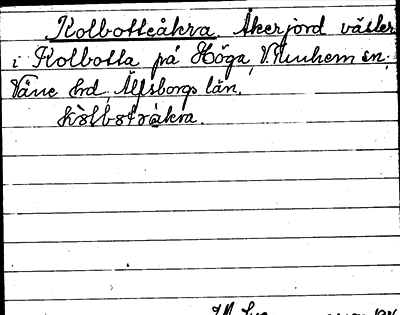 Kolbotteåkra. Åkerjord väster
i Kolbotta på Höga, V. Tunhem sn.
Väne hd, Älfsborgs län.
kòlbotråkra.